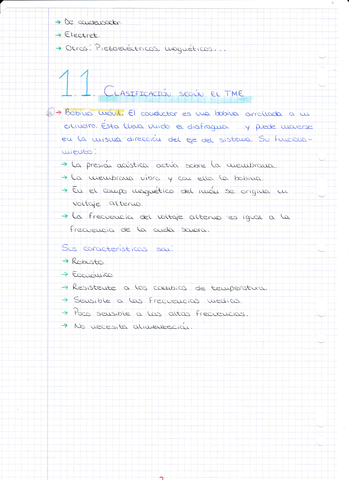 → De condensador
→ Electret
→ Otros: Piezoeléctricos, magnéticos...
1.1. CLASIFICACIÓN SEGÚN EL TME
→ Bobina móvil. El conductor es una bobina arrollada a un
cilindro. Ésta lleva unido el diafragma y puede moverse
en la misma dirección del eje del sistema. Su funciona-
miento:
→ La presión acústica actúa sobre la membrana.
→ La membrana vibra y con ello la bobina.
→ En el campo magnético del imán se origina un
voltaje alterno.
→ La frecuencia del voltaje alterno es igual a la
frecuencia de la onda sonora.
Sus características son:
→ Robusto
→ Económico
→ Resistente a los cambios de temperatura.
→ Sensible a las frecuencias medias.
→ Poco sensible a las altas frecuencias.
→ No necesita alimentación.